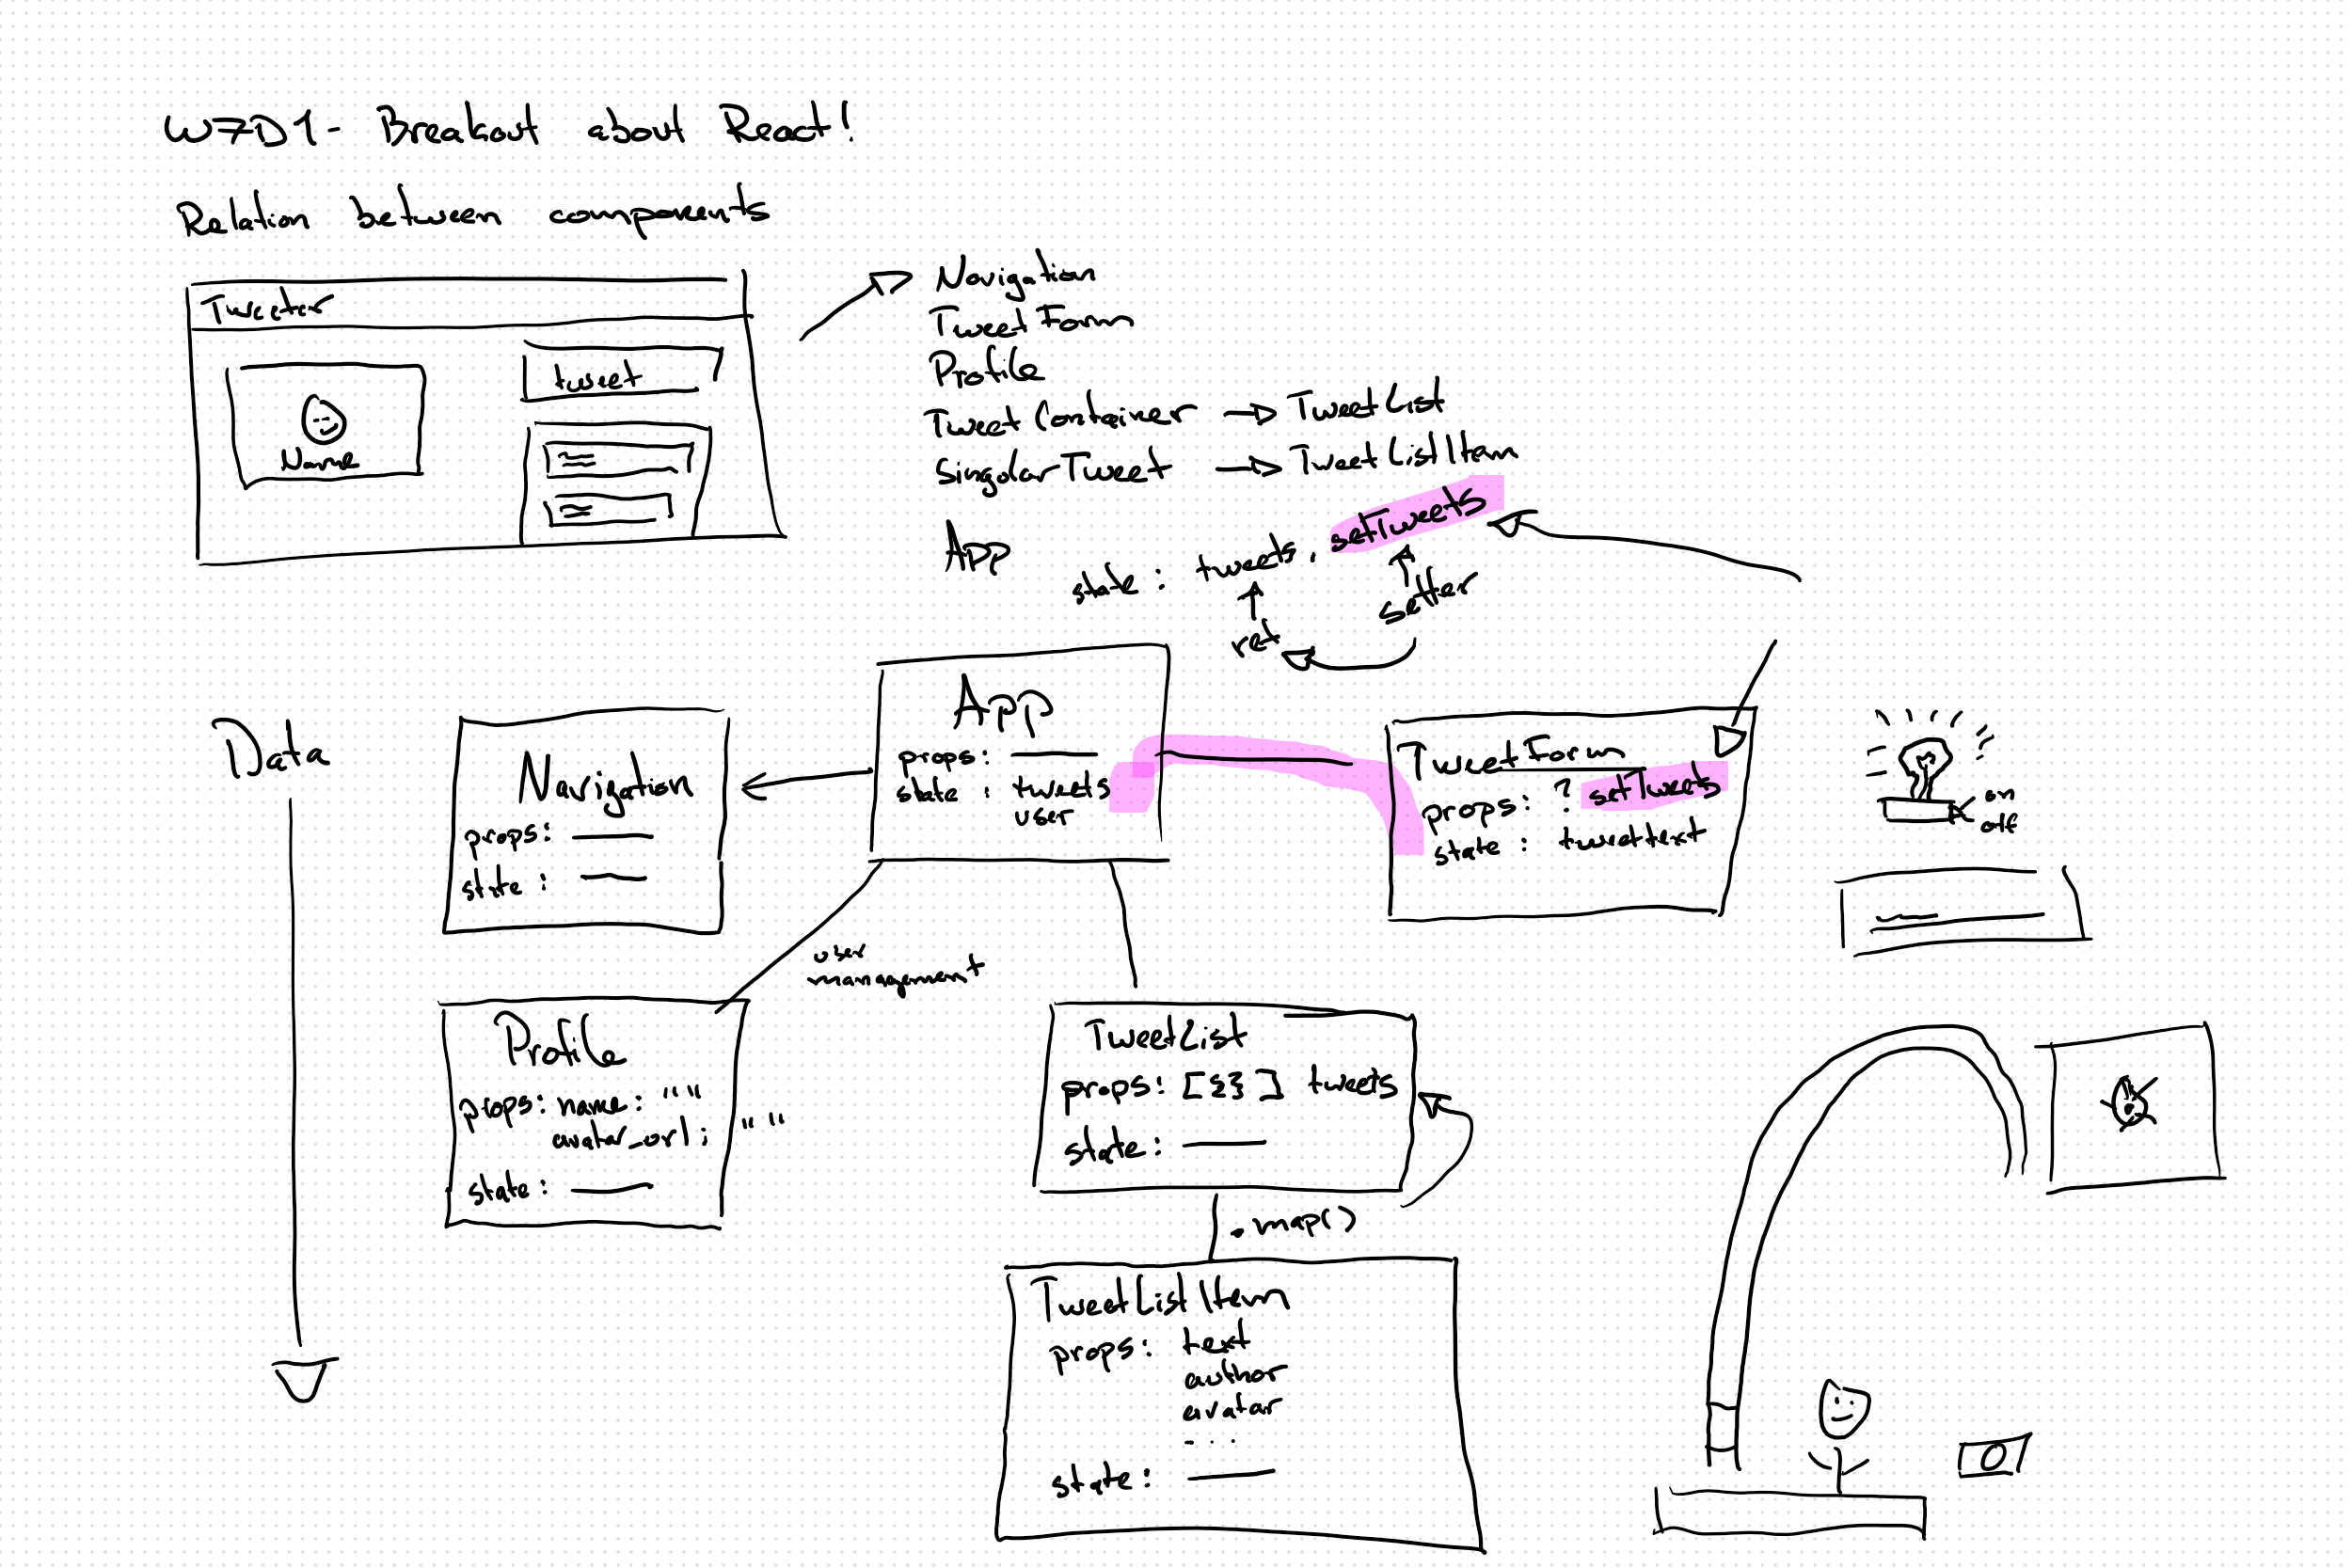 W7D1 - Breakout about React!
Relation between components
Tweeter
tweet
Name
Navigation
TweetForm
Profile
TweetContainer → TweetList
SingolarTweet → TweetListItem
App
state : tweets, setTweets
ret
setter
Data
Navigation
props: —
state : —
App
props: —
state : tweets
user
TweetForm
props: ? setTweets
state : tweettext
on
off
user
management
Profile
props: name: " "
avatar_url: " "
state : —
TweetList
props: [{}] tweets
state: —
.map()
TweetListItem
props: text
author
avatar
- . .
state : —